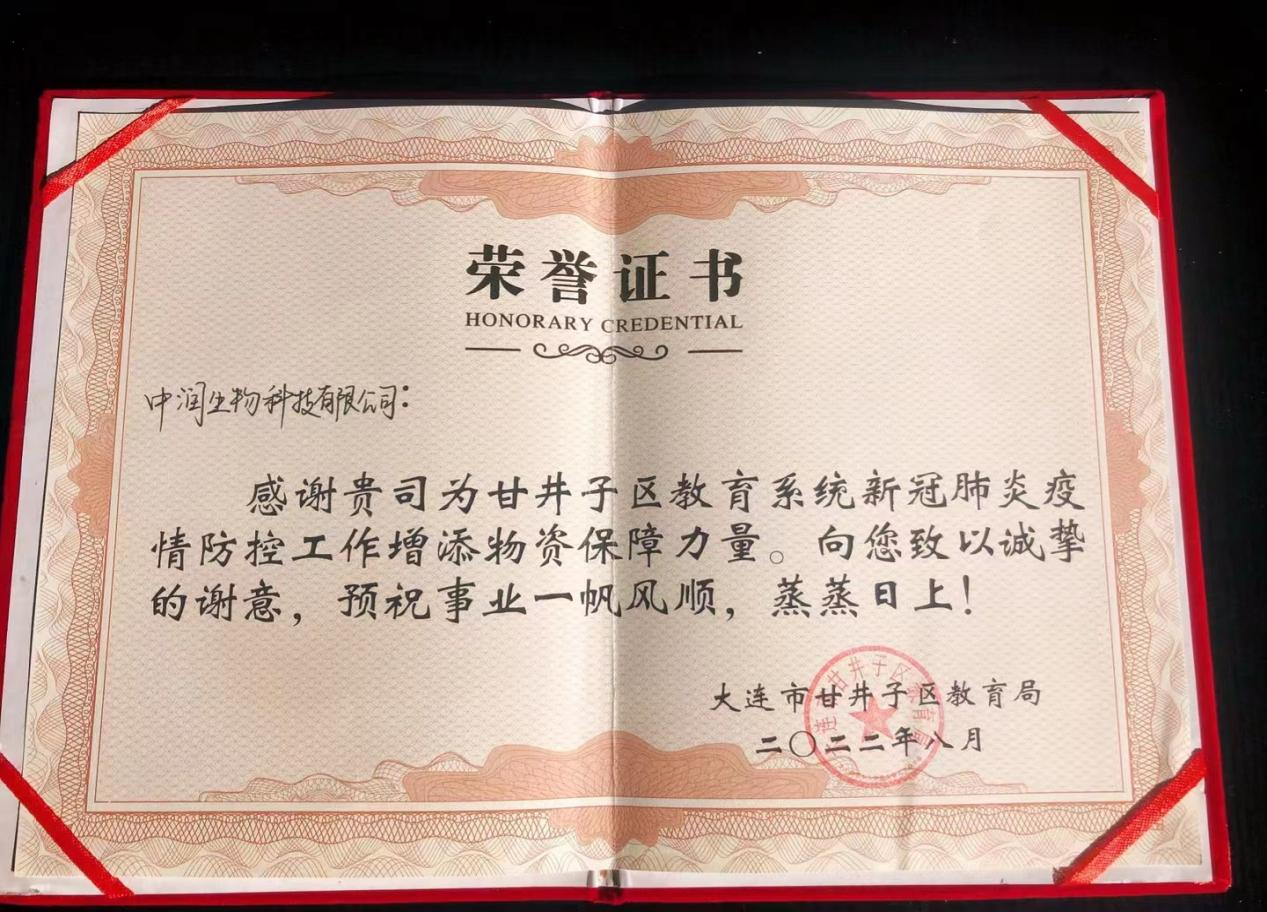 荣誉证书
HONORARY CREDENTIAL
中润生物科技有限公司：
感谢贵司为甘井子区教育系统新冠肺炎疫
情防控工作增添物资保障力量。向您致以诚挚
的谢意，预祝事业一帆风顺，蒸蒸日上！
大连市甘井子区教育局
二〇二二年八月